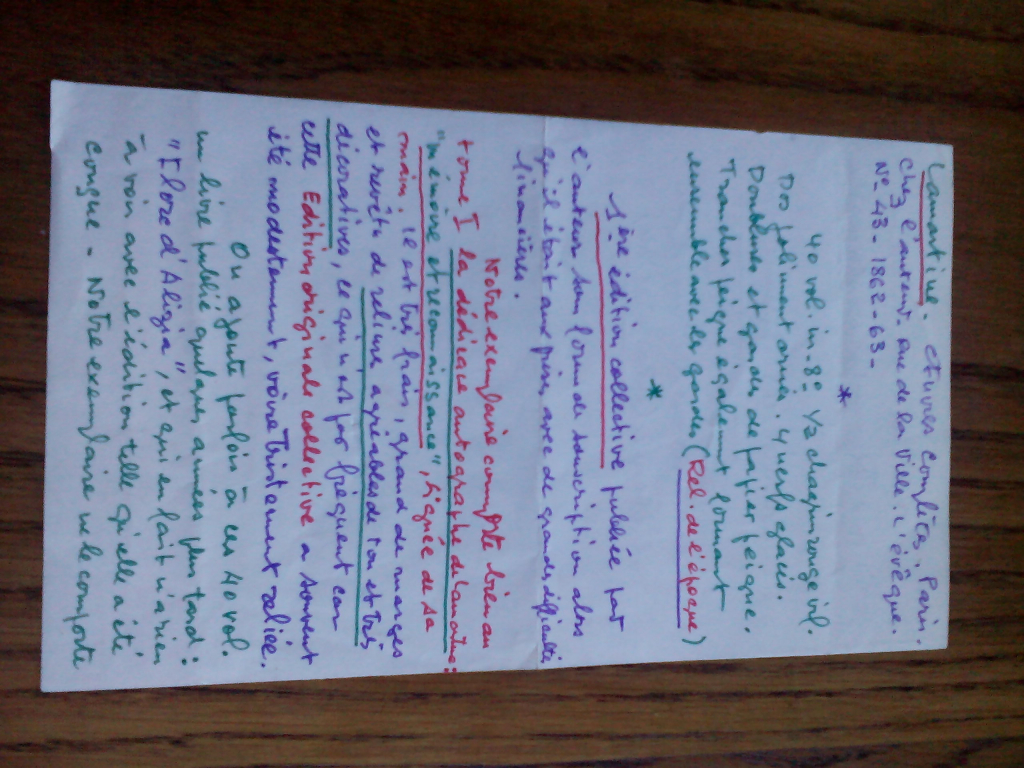 Lamartine - Œuvres complètes. Paris.
Chez l'auteur. rue de la Ville l'évêque.
N° 43 - 1862-63 -
*
40 vol. in-8° 1/2 chagrin rouge viol.
Dos joliment ornés. 4 nerfs
Doublures et gardes de papier peigne.
Tranches peigne également formant
ensemble avec les gardes (Rel. de l'époque)
*
1ère édition collective publiée par
l'auteur sous forme de souscription alors
qu'il était aux prises avec de grandes difficultés
financières.
Notre exemplaire comporte bien au
tome I la dédicace autographe de Lamartine :
"mémoire et reconnaissance", signée de sa
main. Il est très frais, grand de marges
et revêtu de reliures agréables de ton et très
décoratives, ce qui n'est pas fréquent car
cette Edition originale collective a souvent
été modestement, voire tristement reliée.
On ajoute parfois à ces 40 vol.
un livre publié quelques années plus tard :
"Fior d'Aliza", et qui en fait n'a rien
à voir avec l'édition telle qu'elle a été
conçue - Notre exemplaire ne le comporte